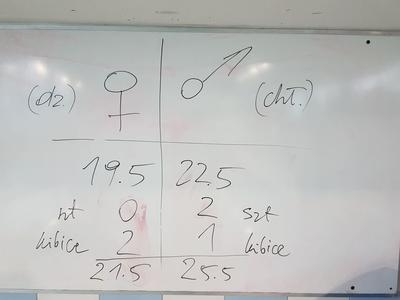 (dz.) ♀ ♂ (chł.)
19.5 22.5
szt 0 2 szt
kibice 2 1 kibice
21.5 25.5